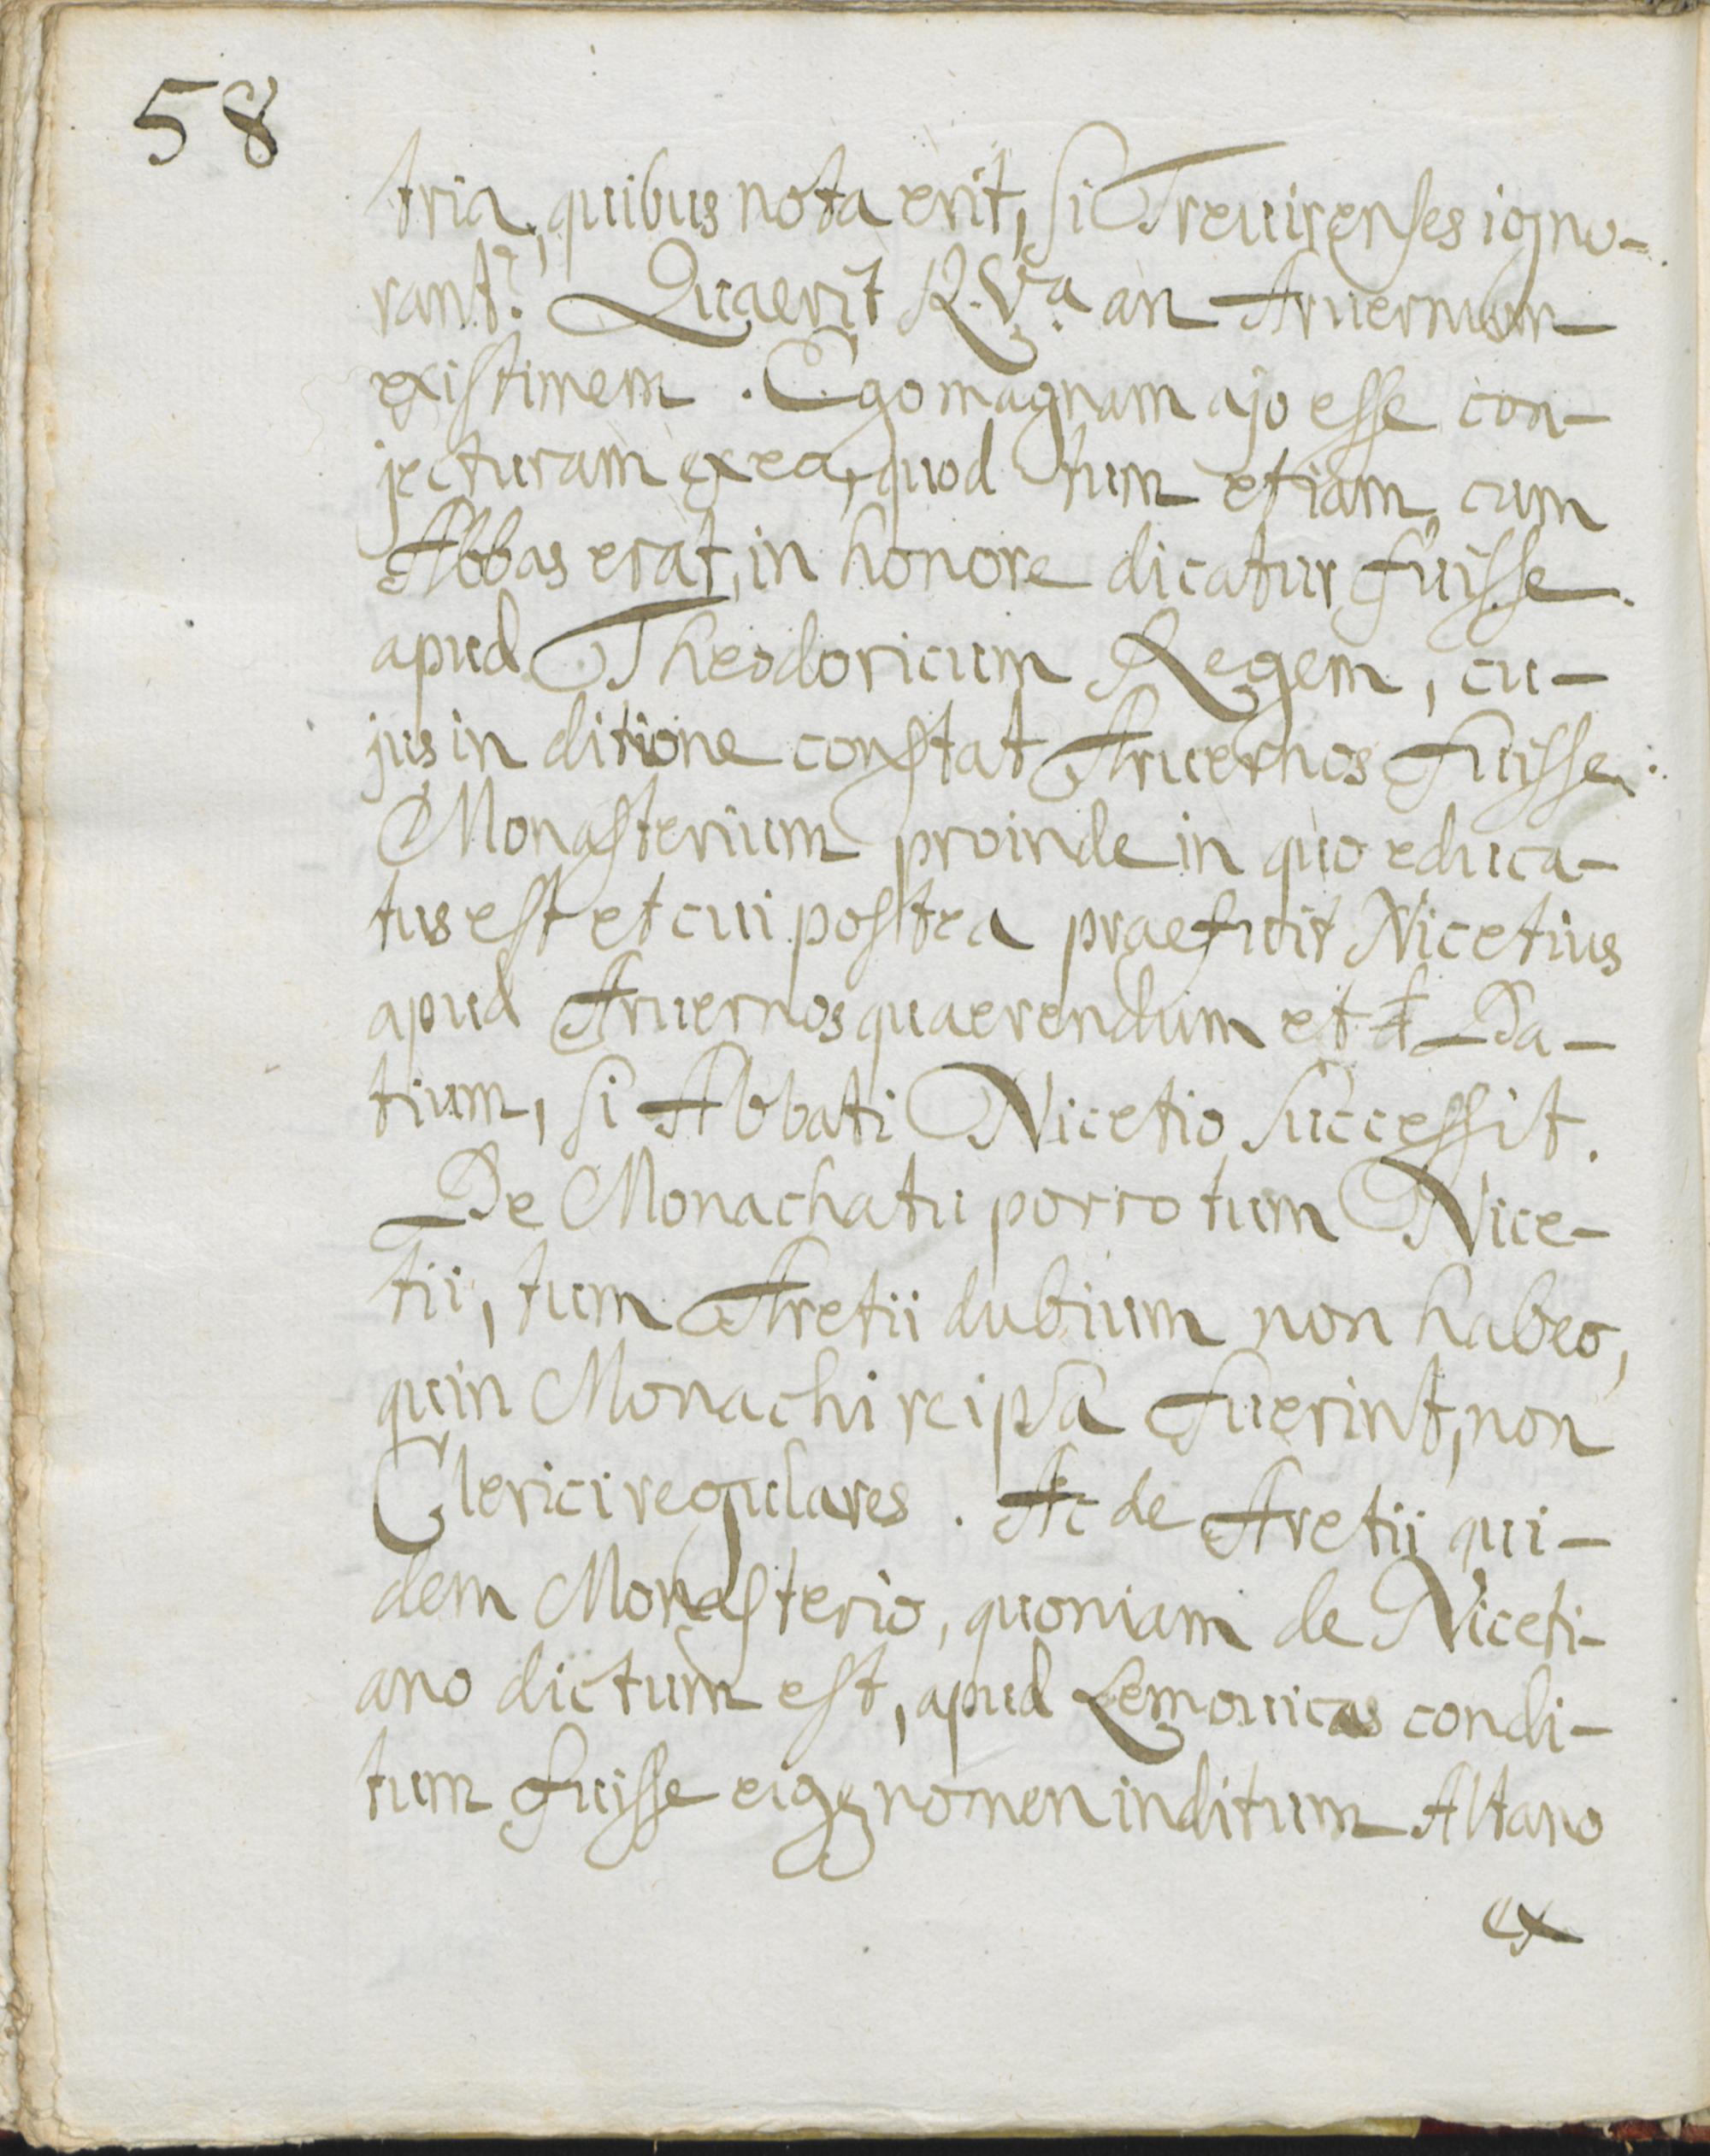 58
tria, quibus nota erit, si Treuirenses igno-
rant? Quaerit R. V.a an Aruernum
existimem. Ego magnam ajo esse con-
jecturam ex ea, quod tum etiam, cum
Abbas erat, in honore dicatur fuisse
apud Theodoricum Regem, cu-
jus in ditione constat Aruernos fuisse:
Monasterium proinde in quo educa-
tus est et cui postea praefuit Nicetius
apud Aruernos quaerendum et Da-
tium, si Abbati Nicetio successit.
De Monachatu porro tum Nice-
tii, tum Aretii dubium non habeo,
quin Monachi reipsa fuerint, non
Clerici regulares. Ac de Aretii qui-
dem Monasterio, quoniam de Niceti-
ano dictum est, apud Lemouicas condi-
tum fuisse eiqz nomen inditum Altano
ex